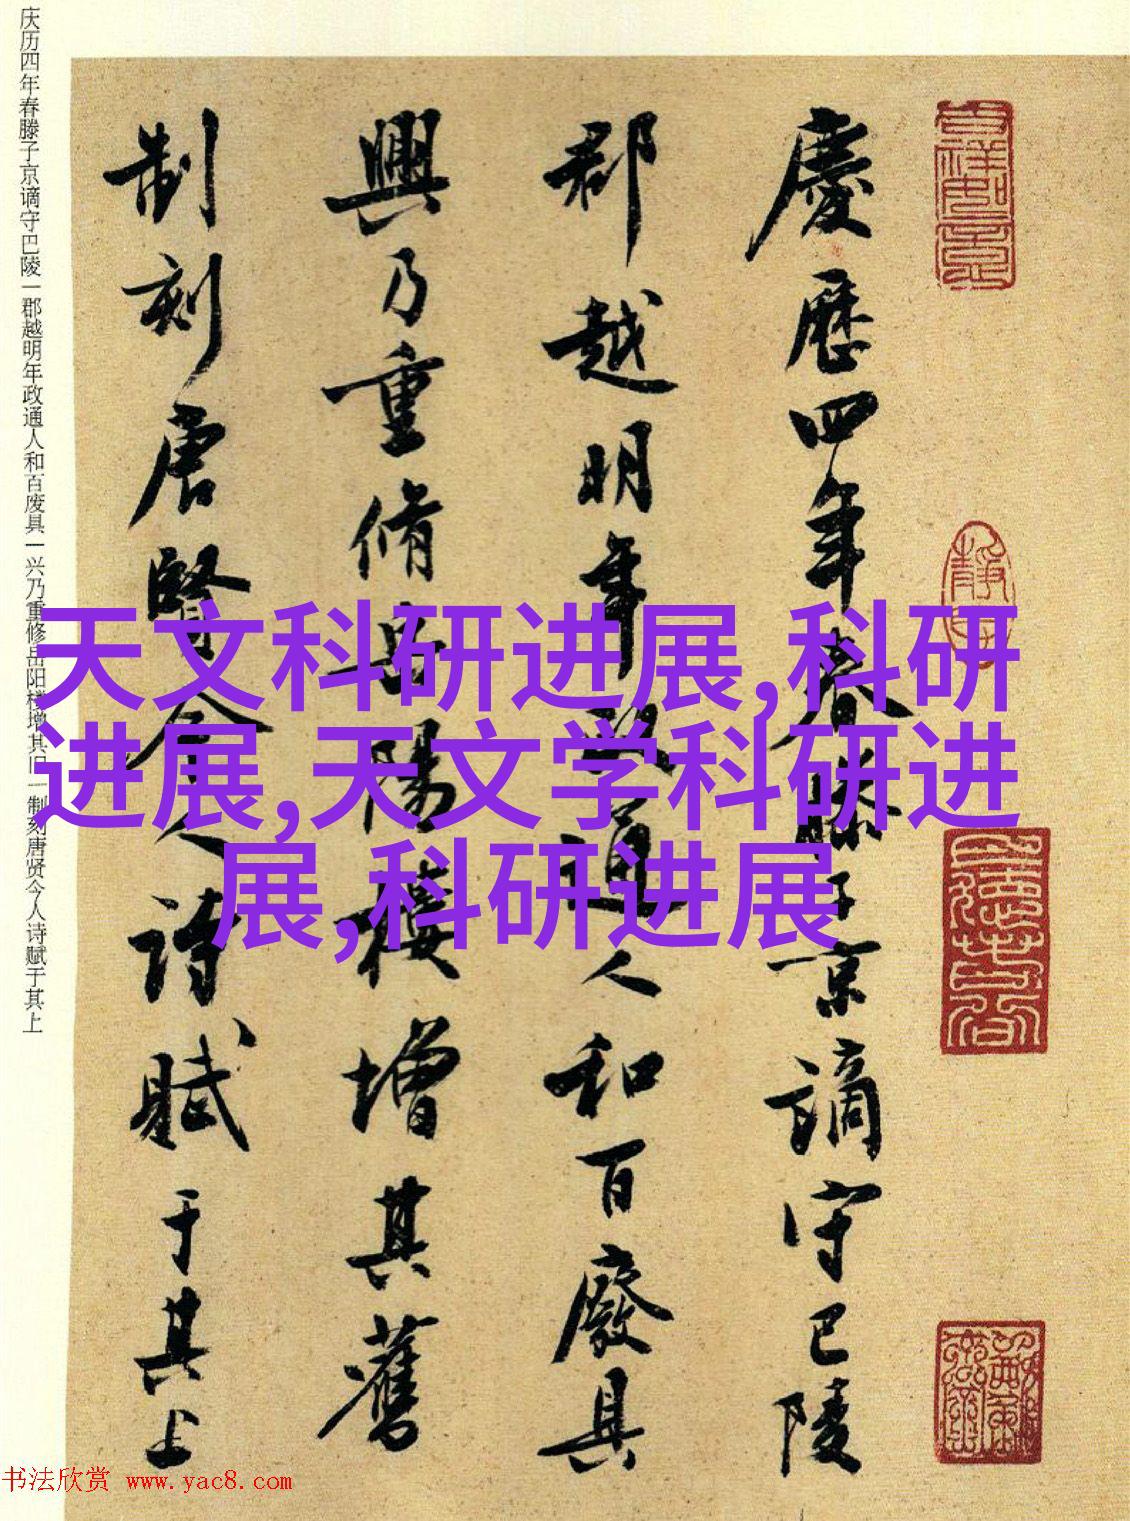 庆历四年春滕子京谪守巴陵一郡越明年政通人和百废具一兴乃重修岳阳楼增其旧一制刻唐贤今人诗赋于其上
慶歷四年春滕子京謫守巴陵
郡越明年政通人和百廢具
興乃重脩岳陽樓增其舊
制刻唐賢今人詩賦于其上
天文科研进展,科研
进展,天文学科研进
展,科研进展
书法欣赏 www.yac8.com